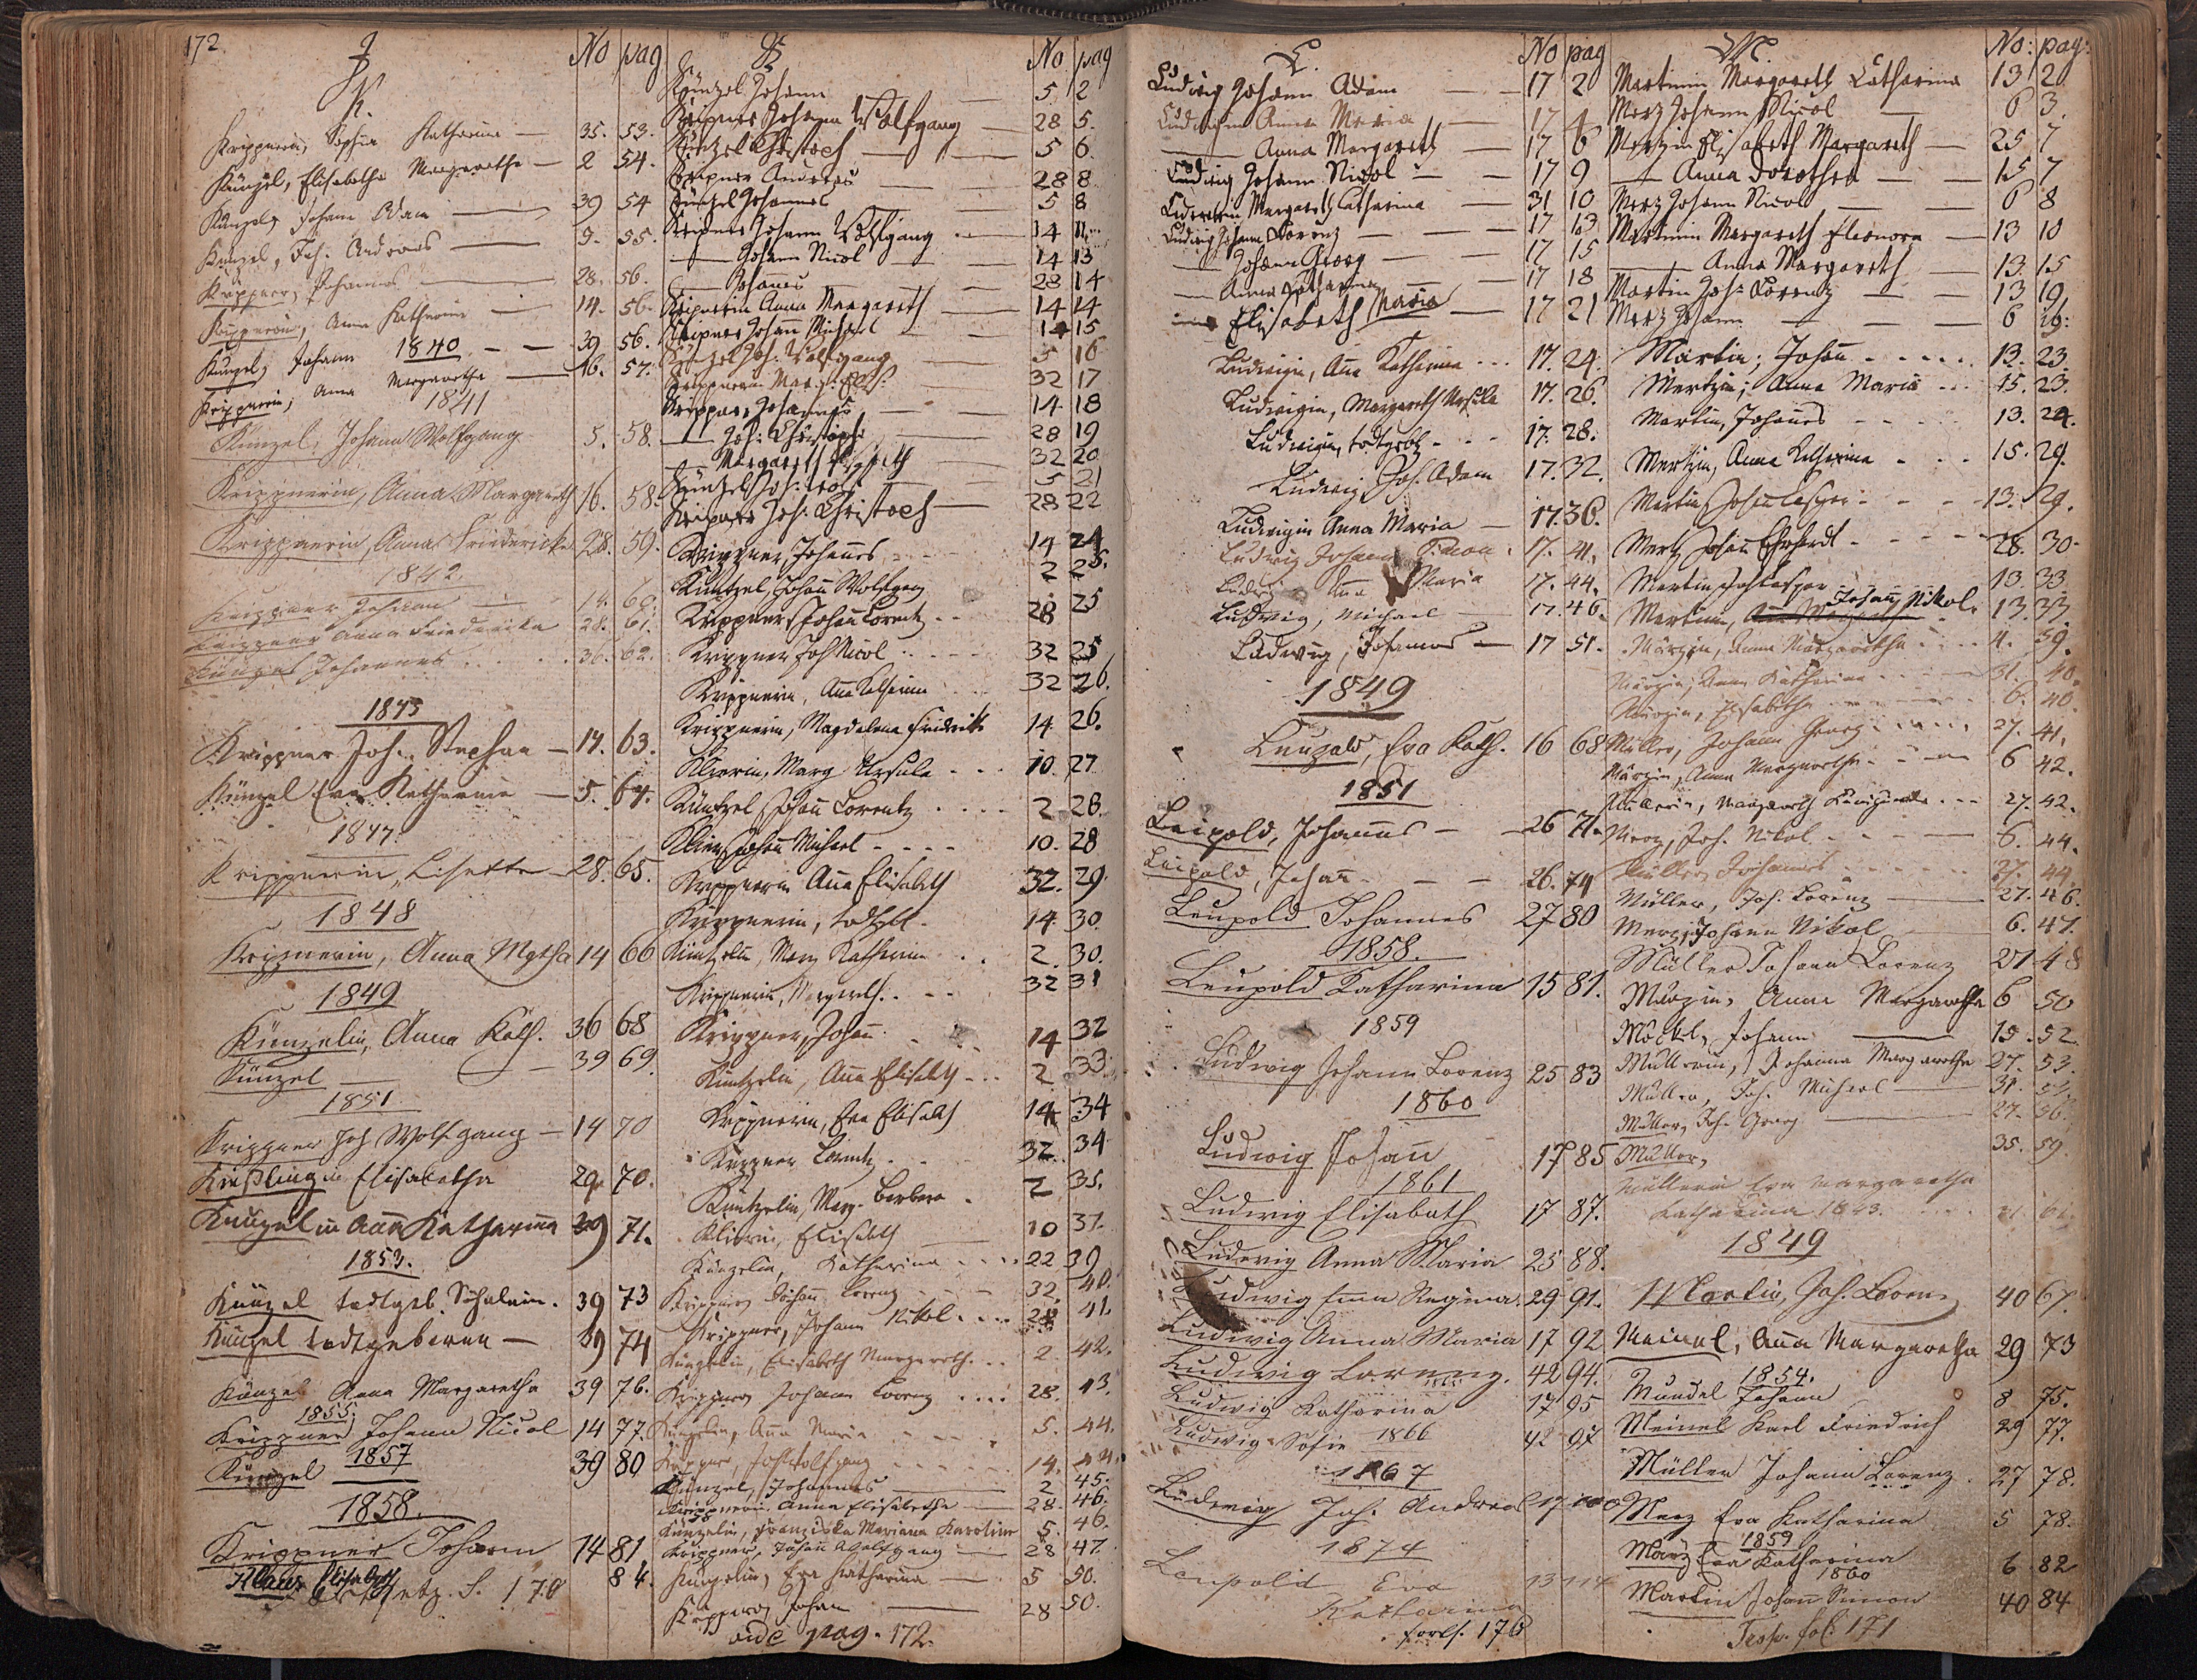 172.
J
K.
No pag
Krippnerin, Sophia Katharina — 35. 53.
Künzel, Elisabetha Margaretha — 2 54.
Künzel, Johann Adam — 39 54
Künzel, Joh. Andreas — 9. 55.
Krippner, Johannes — 28. 56.
Krippnerin, Anna Katharina — 14. 56.
Künzel, Johann 1840 — 39 56.
Krippnerin, Anna Margaretha — 16. 57.
1841
Künzel, Johann Wolfgang 5. 58.
Krippnerin, Anna Margareth 16. 58.
Krippnerin, Anna Friedericka 28. 59.
1842.
Krippner Johann — 14. 60.
Krippner Anna Friedericka 28. 61.
Künzel Johannes 36. 62.
1843
Krippner Joh. Stephan — 14. 63.
Künzel Eva Katharina — 5. 64.
1847.
Krippnerin, Lisette 28. 65.
1848
Krippnerin, Anna Mgtha 14 66
1849
Künzelin, Anna Kath. 36 68
Künzel — 39 69.
1851
Krippner Joh Wolfgang — 14 70
Kießlingin Elisabetha 29. 70.
Künzelin Aña Katharina 39 71.
1853.
Künzel todtgeb. 39 73
Künzel todtgeboren — 39 74
Künzel Anna Margaretha 39 76.
1855.
Krippner Johann Nicol 14 77.
Künzel 1857 39 80
1858.
Krippner Johann 14 81
Elisabeth 84.
S. 170
K
No pag
Künzel Johann — 5 2
Kripner Johann Wolfgang — 28 5.
Küntzel Christoph — 5 6
Kripner Andreas — 28 8
Künzel Johannes 5 8
Kripner Johann Wolfgang — 14 11
— Johann Nicol — 14 13
— Johannes — 28 14
Kripnerin Anna Margareth — 14 14
Kripner Johann Michael — 14 15
Künzel Joh. Wolfgang — 5 16
Krippnerin Marg. Elis. 32 17
Krippner, Johannes — 14 18
— Joh. Christoph — 28 19
— Margareth Elisabeth 32 20
Küntzel Joh. Wolf — 5 21
Kripner Joh. Christoph — 28 22
Krippner, Johannes 14 24
Küntzel, Johañ Wolfgang 2 25.
Krippner, Johañ Lorentz 28 25
Krippner Joh Nicol 32 25
Krippnerin, Aña Katharina 32 26.
Krippnerin, Magdalena Friedrika 14 26.
Klierin, Marg Ursula 10. 27
Küntzel, Johañ Lorentz 2 28.
Klier, Johañ Michael 10. 28
Krippnerin Aña Elisabeth 32. 29.
Krippnerin, todtgeb. 14 30.
Küntzelin, Marg Katharina 2. 30.
Krippnerin, Margareth. 32 31
Krippner, Johañ 14 32
Küntzelin, Aña Elisabeth 2. 33.
Krippnerin, Eva Elisabeth 14 34
Krippner Lorentz 32. 34
Küntzelin, Marg. Barbara 2 35.
Klierin, Elisabeth 10 37.
Künzelin, Katharina 22 39
Krippner, Johañ Lorenz 32. 40.
Krippner, Johann Nikol. 28 41.
Künzelin, Elisabeth Margareth. 2. 42.
Krippner Johann Lorenz 28. 43.
Künzelin, Aña Maria 5. 44.
Krippner, Joh Wolfgang 14. 44.
Künzel, Johannes 2 45.
Krippnerin Anna Elisabetha — 28. 46.
Künzelin, Franziska Mariana Karolina 5. 46.
Krippner, Johañ Wolfgang — 28 47
Künzelin, Eva Katharina — 5 50.
Krippner, Johann — 28 50.
vide pag. 172.
L.
No pag
Ludwig Johann Adam — 17 2
Ludwigin Anna Maria — 17 4
— Anna Margareth — 17 6
Ludwig Johann Nicol — 17 9
Margareth Catharina — 31 10
Ludwig Johann Lorenz — 17 13
— Johann Georg — 17 15
— Anna Catharina — 17 18
Elisabeth Maria — 17 21
Ludwigin, Aña Katharina 17. 24.
Ludwigin, Margareth Ursula 17. 26.
Ludwigin, todtgeb. 17. 28.
Ludwig, Joh. Adam 17. 32.
Ludwigin Anna Maria — 17. 36.
Ludwig Johann Simon 17. 41.
Ludwig Aña Maria 17. 44.
Ludwig, Michael — 17. 46.
Ludwig, Johannes — 17 51.
1849
Leupold, Eva Kath. 16 68
1851
Leupold, Johannes — 26 71.
Leupold, Johañ — 26. 74
Leupold Johannes 27 80
1858.
Leupold Katharina 15 81.
1859
Ludwig Johann Lorenz 25 83
1860
Ludwig Johañ 17 85
1861
Ludwig Elisabeth 17 87.
Ludwig Anna Maria 25 88.
Ludwig Regina 29 91.
Ludwig Anna Maria 17 92
Ludwig Lorenz. 42 94.
Ludwig Katharina 17 95
Ludwig Sofie 1866 42 97
1867
Ludwig Joh. Andreas 17 100
1874
Leupold Eva
Katharina 13 114
forts. 176
M.
No: pag:
Martinin Margareth Catharina 13 2
Merz Johann Nicol — 6 3.
Merzin Elisabeth Margareth — 25 7
— Anna Dorothea — 15 7
Merz Johann Nicol — 6 8
Martinin Margareth Eleonora — 13 10
— Anna Margareth — 13. 15
Martin Joh: Lorenz — 13 19
Merz Johann — 6 19.
Martin, Johañ 13. 23.
Mertzin, Anna Maria 15. 23.
Martin, Johañes 13. 24.
Mertzin, Anna Katharina 15. 29.
Martin, Johañ Caspar 13. 29.
Mertz Johañ Erhardt 28. 30.
Martin, Joh Caspar 13 33.
Martin, Johañ Nikol. 13. 37.
Märzin, Anna Margaretha 4. 39.
Märzin, Anna Katharina 31. 40.
Märzin, Elisabetha 6. 40.
Müller, Johann Georg 27. 41.
Märzin, Anna Margaretha 6 42.
Müllerin, Margareth Kunigunda 27. 42.
Merz, Joh. Nikol 6. 44.
Müller Johannes 27. 44.
Müller, Joh. Lorenz — 27. 46.
Merz, Johann Nikol — 6. 47.
Müller Johann Lorenz 27 48
Märzin, Anna Margaretha 6 50
Möckel, Johann — 15. 52.
Müllerin, Johanna Margaretha 27. 53.
Müller, Joh. Michael —
Müller, Joh. Georg — 27. 56.
Müller, 35. 59.
Müllerin Eva Margaretha
Katharina 1843.
1849
Martin, Joh. Lorenz 40 67.
Meinel, Aña Margaretha 29 73
1854.
Mundel Johann 8 75.
Meinel Karl Friedrich 29 77.
Müller Johann Lorenz 27 78.
Merz Eva Katharina 5 78.
1859
März Eva Katharina 6 82
1860
Martin Johañ Simon 40 84
fol. 171